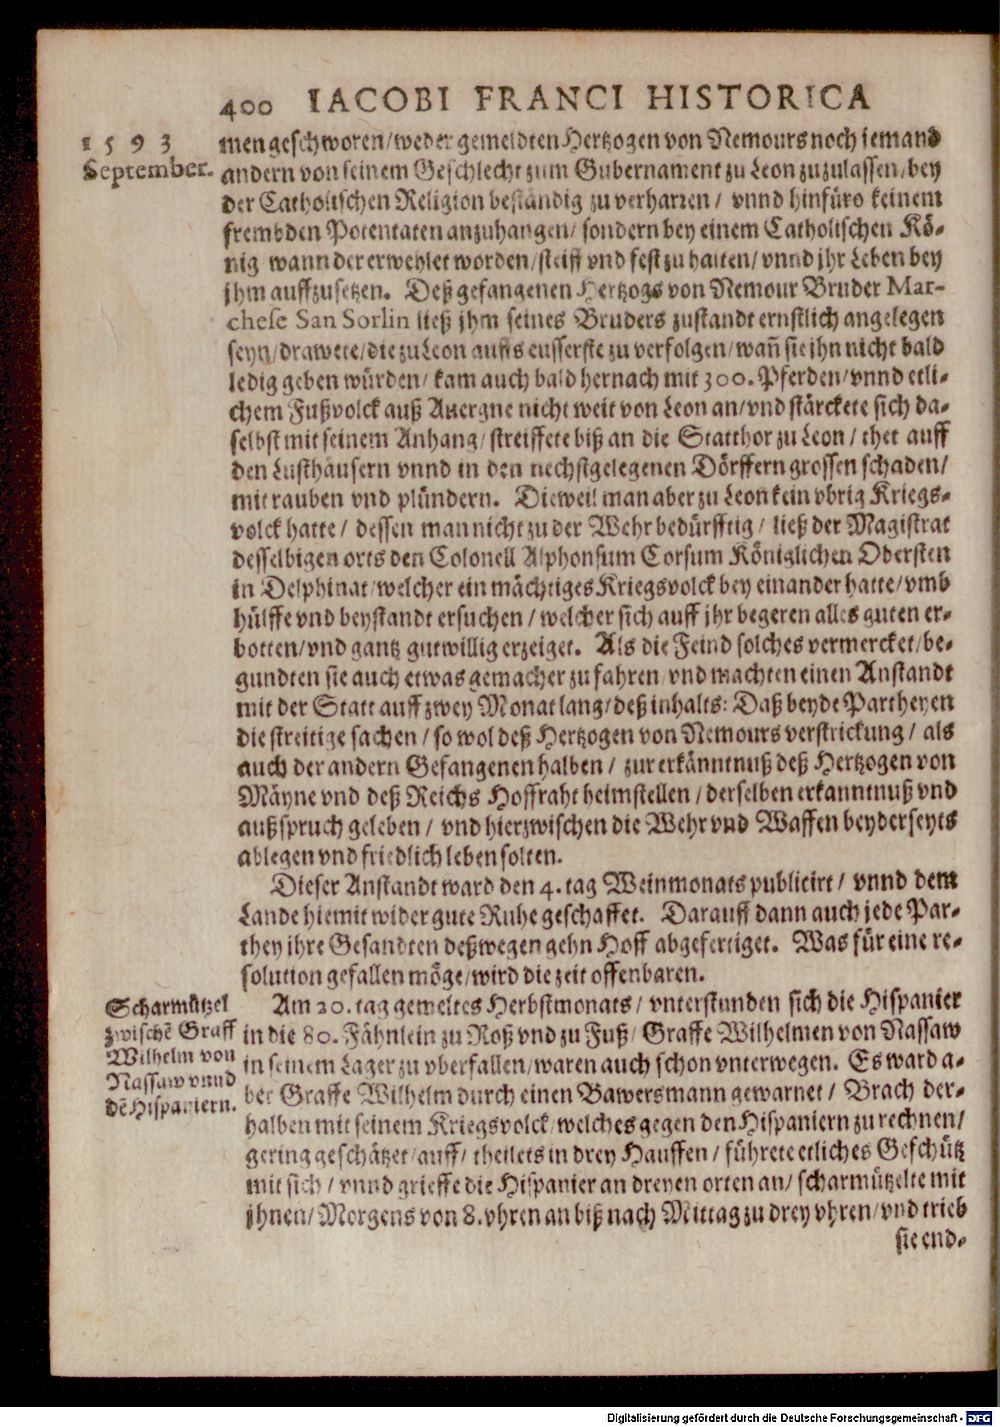 400 IACOBI FRANCI HISTORICA
1593
September.
men geschworen/weder gemeldten Hertzogen von Nemours noch jemand
andern von seinem Geschlecht zum Gubernament zu Leon zuzulassen/bey
der Catholischen Religion beständig zu verharren/ vnnd hinfüro keinem
frembden Potentaten anzuhangen/ sondern bey einem Catholischen Kö-
nig wann der erwehlet worden/steiff vnd fest zu halten/vnnd jhr Leben bey
jhm auffzusetzen. Deß gefangenen Hertzogs von Nemour Bruder Mar-
chese San Sorlin ließ jhm seines Bruders zustandt ernstlich angelegen
seyn/drawete/die zu Leon auffs eusserste zu verfolgen/wañ sie jhn nicht bald
ledig geben würden/ kam auch bald hernach mit 300. Pferden/vnnd etli-
chem Fußvolck auß Auergne nicht weit von Leon an/vnd stärckete sich da-
selbst mit seinem Anhang/streiffete biß an die Statthor zu Leon/ thet auff
den Lusthäusern vnnd in den nechstgelegenen Dörffern grossen schaden/
mit rauben vnd plündern. Dieweil man aber zu Leon kein vbrig Kriegs-
volck hatte/ dessen man nicht zu der Wehr bedürfftig/ ließ der Magistrat
desselbigen orts den Colonell Alphonsum Corsum Königlichen Obersten
in Delphinat/welcher ein mächtiges Kriegsvolck bey einander hatte/vmb
hülffe vnd beystandt ersuchen/ welcher sich auff jhr begeren alles guten er-
botten/vnd gantz gutwillig erzeiget. Als die Feind solches vermercket/be-
gundten sie auch etwas gemacher zu fahren/ vnd machten einen Anstandt
mit der Statt auff zwey Monat lang/deß inhalts: Daß beyde Partheyen
die streitige sachen/ so wol deß Hertzogen von Nemours verstrickung/ als
auch der andern Gefangenen halben/ zur erkänntnuß deß Hertzogen von
Mäyne vnd deß Reichs Hoffraht heimstellen/ derselben erkanntnuß vnd
außspruch geleben/ vnd hierzwischen die Wehr vnd Waffen beyderseyts
ablegen vnd friedlich leben solten.
Dieser Anstandt ward den 4. tag Weinmonats publicirt/ vnnd dem
Lande hiemit wider gute Ruhe geschaffet. Darauff dann auch jede Par-
they ihre Gesandten deßwegen gehn Hoff abgefertiget. Was für eine re-
solution gefallen möge/wird die zeit offenbaren.
Scharmützel
zwischẽ Graff
Wilhelm von
Nassaw vnnd
dẽ Hispaniern.
Am 20. tag gemeltes Herbstmonats/ vnterstunden sich die Hispanier
in die 80. Fähnlein zu Roß vnd zu Fuß/ Graffe Wilhelmen von Nassaw
in seinem Lager zu vberfallen/waren auch schon vnterwegen. Es ward a-
ber Graffe Wilhelm durch einen Bawersmann gewarnet/ Brach der-
halben mit seinem Kriegsvolck/welches gegen den Hispaniern zu rechnen/
gering geschätzet/auff/ theilets in drey Hauffen/ führete etliches Geschütz
mit sich/ vnnd grieffe die Hispanier an dreyen orten an/ scharmützelte mit
jhnen/Morgens von 8. vhren an biß nach Mittag zu drey vhren/vnd trieb
sie end-
Digitalisierung gefördert durch die Deutsche Forschungsgemeinschaft - DFG